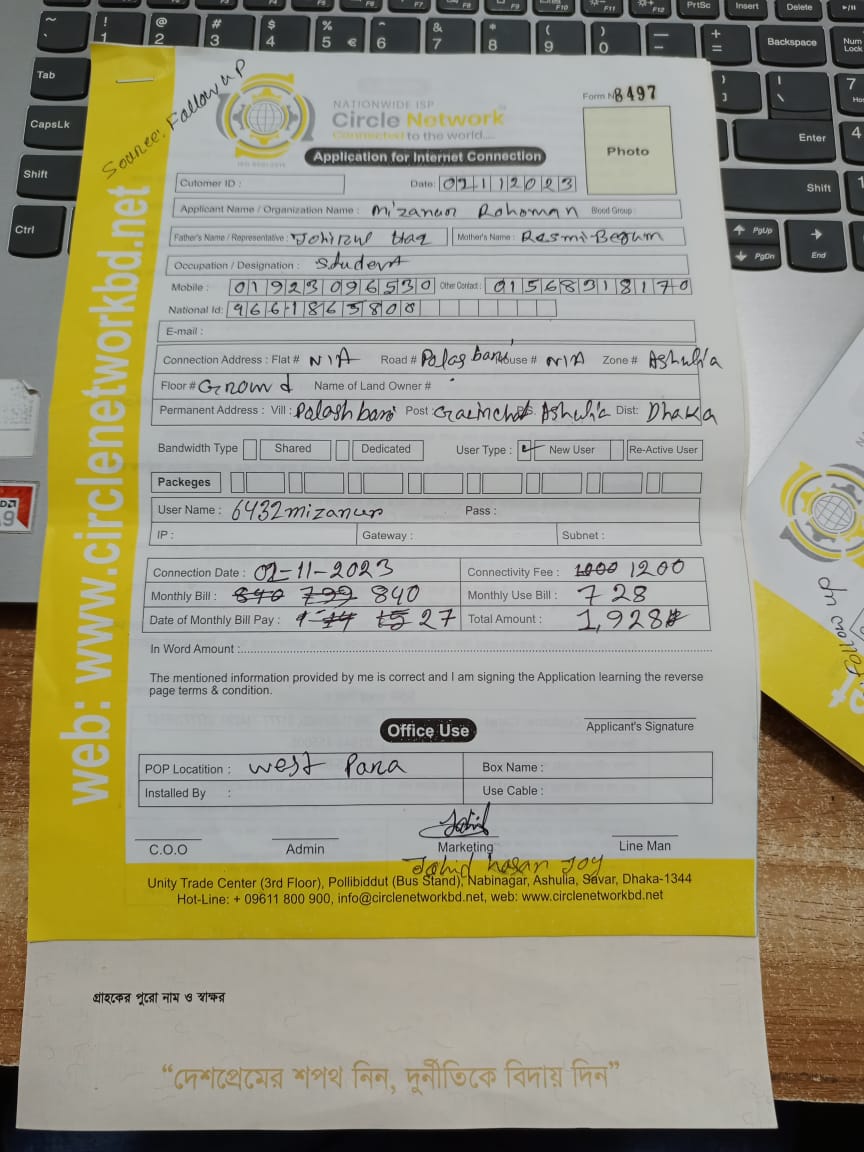 Source: Follow up
NATIONWIDE ISP
Circle Network
Connected to the world....
ISO 9001:2015
Form No 8497
Application for Internet Connection
Photo
Cutomer ID :
Date: 02112023
Applicant Name / Organization Name : Mizanur Rohoman Blood Group:
Father's Name / Representative : Johirul Haq Mother's Name : Rasmi Begum
Occupation / Designation : Student
Mobile : 01923096530 Other Contact : 01568318170
National Id: 9661865800
E-mail :
Connection Address : Flat # N/A Road # Palas bari House # N/A Zone # Ashulia
Floor # Ground Name of Land Owner #
Permanent Address : Vill : Palash bari Post Ashulia Dist: Dhaka
Bandwidth Type Shared Dedicated User Type : New User Re-Active User
Packeges
User Name : 6432mizanur Pass :
IP : Gateway : Subnet :
Connection Date : 02-11-2023 Connectivity Fee : 1000 1200
Monthly Bill : 840 799 840 Monthly Use Bill : 728
Date of Monthly Bill Pay : 15 27 Total Amount : 1,928
In Word Amount :
The mentioned information provided by me is correct and I am signing the Application learning the reverse
page terms & condition.
Applicant's Signature
Office Use
POP Locatition : West Para Box Name :
Installed By : Use Cable :
Jahid
C.O.O Admin Marketing Line Man
Jahid hasan Joy
Unity Trade Center (3rd Floor), Pollibiddut (Bus Stand), Nabinagar, Ashulia, Savar, Dhaka-1344
Hot-Line: + 09611 800 900, info@circlenetworkbd.net, web: www.circlenetworkbd.net
web: www.circlenetworkbd.net
গ্রাহকের পুরো নাম ও স্বাক্ষর
“দেশপ্রেমের শপথ নিন, দুর্নীতিকে বিদায় দিন”
Follow up